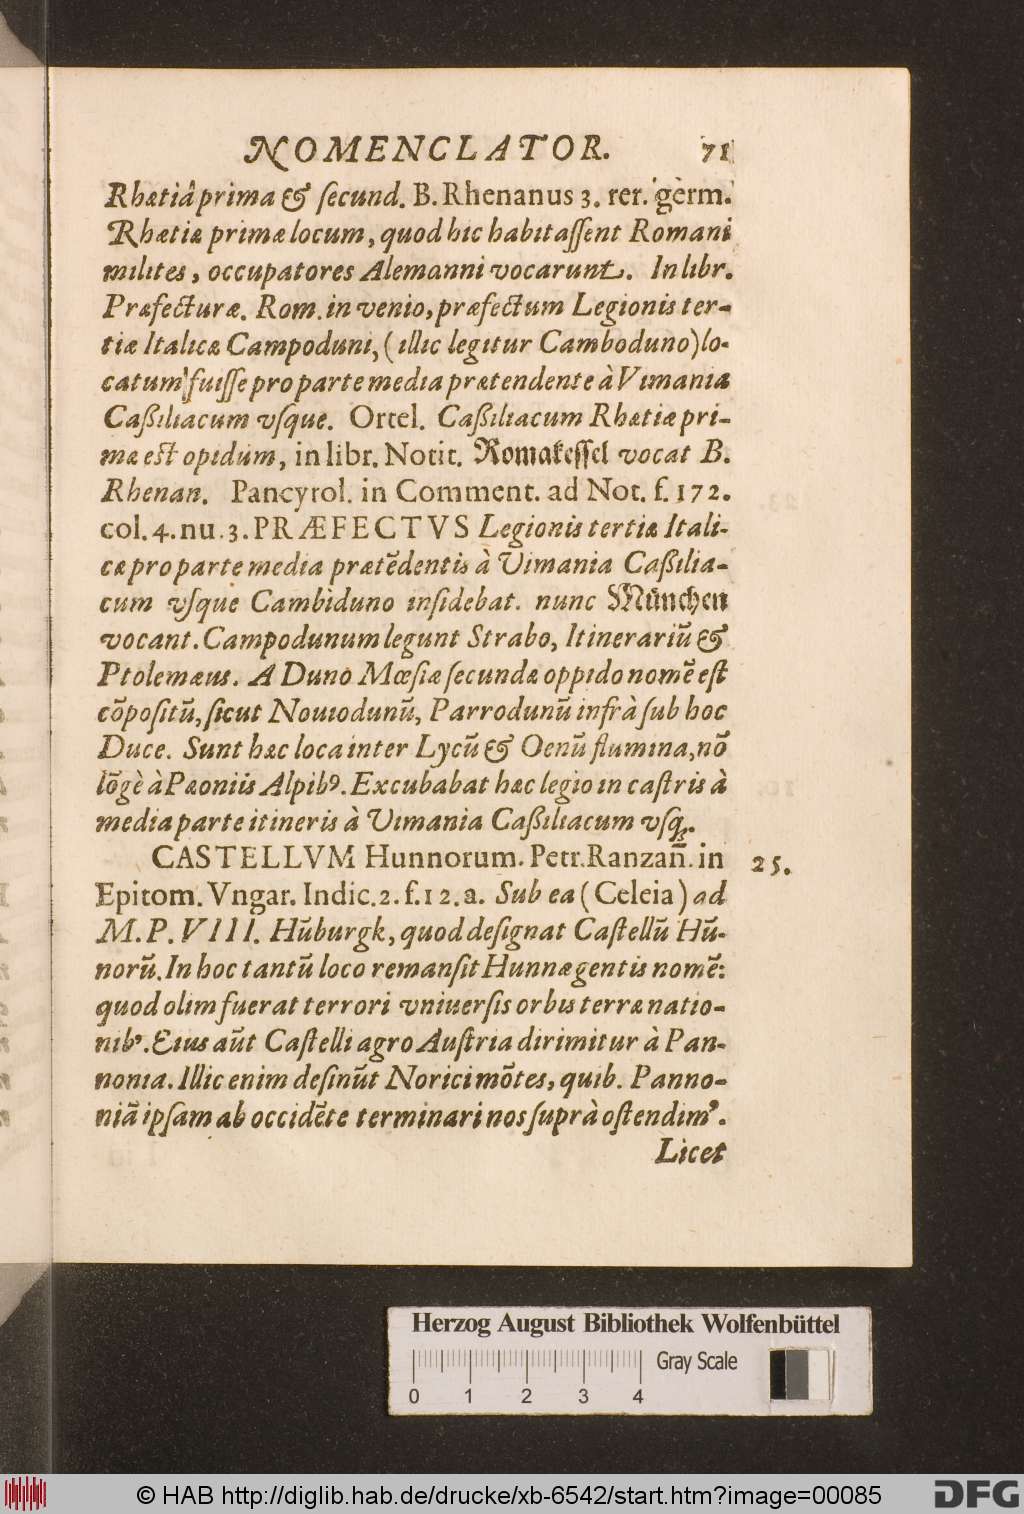 NOMENCLATOR. 71
Rhætiâ prima & ſecund. B. Rhenanus 3. rer. germ.
Rhætiæ primæ locum, quod hic habitaſſent Romani
milites, occupatores Alemanni vocarunt. In libr.
Præfecturæ. Rom. in venio, præfectum Legionis ter-
tiæ Italicæ Campoduni, (illic legitur Camboduno) lo-
catum fuiſſe pro parte media prætendente à Vimania
Caßiliacum vſque. Ortel. Caßiliacum Rhætiæ pri-
mæ est opidum, in libr. Notit. Romakeſſel vocat B.
Rhenan. Pancyrol. in Comment. ad Not. f. 172.
col. 4. nu. 3. PRÆFECTVS Legionis tertiæ Itali-
cæ pro parte media prætẽdentis à Vimania Caßilia-
cum vſque Cambiduno inſidebat. nunc München
vocant. Campodunum legunt Strabo, Itinerariũ &
Ptolemæus. A Duno Mœſiæ ſecundæ oppido nomẽ eſt
cõpoſitũ, ſicut Nouiodunũ, Parrodunũ infrà ſub hoc
Duce. Sunt hæc loca inter Lycũ & Oenũ flumina, nõ
lõgè à Pæoniis Alpibꝰ. Excubabat hæc legio in caſtris à
media parte itineris à Vimania Caßiliacum vſq;.
CASTELLVM Hunnorum. Petr. Ranzan̄. in 25.
Epitom. Vngar. Indic. 2. f. 12. a. Sub ea (Celeia) ad
M. P. VIII. Hũburgk, quod deſignat Caſtellũ Hũ-
norũ. In hoc tantũ loco remanſit Hunnæ gentis nomẽ:
quod olim fuerat terrori vniuerſis orbis terræ natio-
nibꝰ. Eius aũt Caſtelli agro Auſtria dirimitur à Pan-
nonia. Illic enim deſinũt Norici mõtes, quib. Panno-
niã ipſam ab occidẽte terminari nos ſuprà oſtendimꝰ.
Licet
Herzog August Bibliothek Wolfenbüttel
Gray Scale
0 1 2 3 4
© HAB http://diglib.hab.de/drucke/xb-6542/start.htm?image=00085
DFG